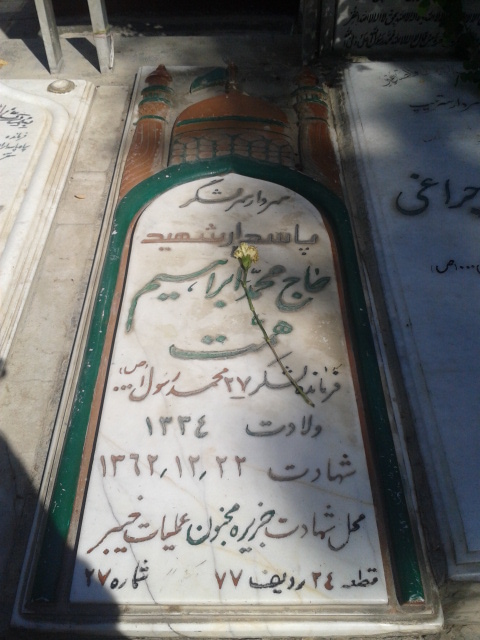 سردار سرلشگر
پاسدار شهید
حاج محمد ابراهیم
همت
فرمانده لشکر ۲۷ محمد رسول ا... (ص)
ولادت ۱۳۳۴
شهادت ۱۳۶۲٫۱۲٫۲۲
محل شهادت جزیره مجنون عملیات خیبر
قطعه ۲۴ ردیف ۷۷ شماره ۲۷
چراغی